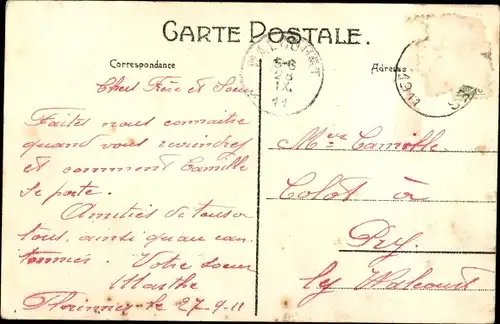 CARTE POSTALE.
Correspondance
Adresse
WALCOURT
5-6
25
IX
11
Chers Frère et Soeur
Faites nous connaitre
quand vous reviendrez
et comment Camille
se porte.
Amitiés de tous
tous, ainsi qu'au can-
tonnier.
Votre soeur
Marthe
le 27-9-11
Camille
Colot à
Pry
lez Walcourt